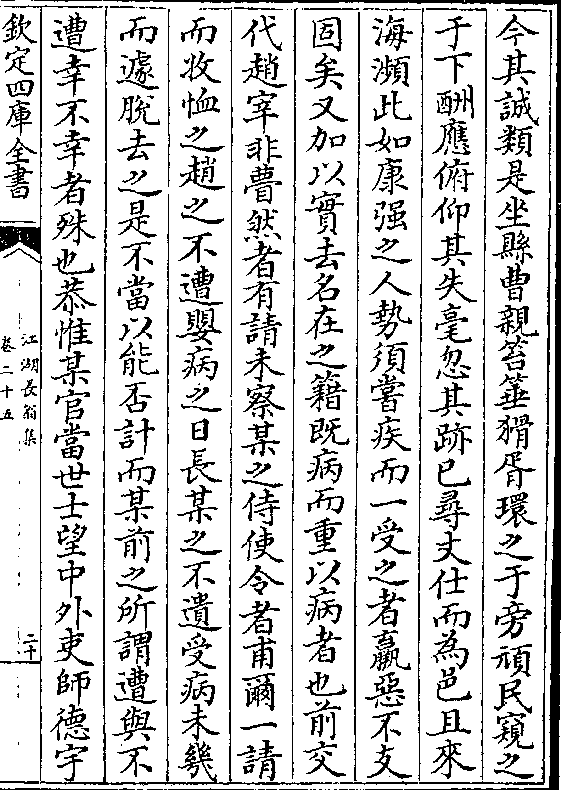 今其誠類是坐縣曹親笞箠猾胥環之于旁頑民窺之
于下酬應俯仰其失毫忽其跡已尋丈仕而為邑且來
海瀕此如康强之人勢須嘗疾而一受之者羸惡不支
固矣又加以實去名在之籍既病而重以病者也前交
代趙宰非瞢然者有請未察某之侍使令者甫爾一請
而收恤之趙之不遭嬰病之日長某之不遺受病未幾
而遽脫去之是不當以能否計而某前之所謂遭與不
遭幸不幸者殊也恭惟某官當世士望中外吏師德宇
欽定四庫全書
江湖長翁集
卷二十五
二十